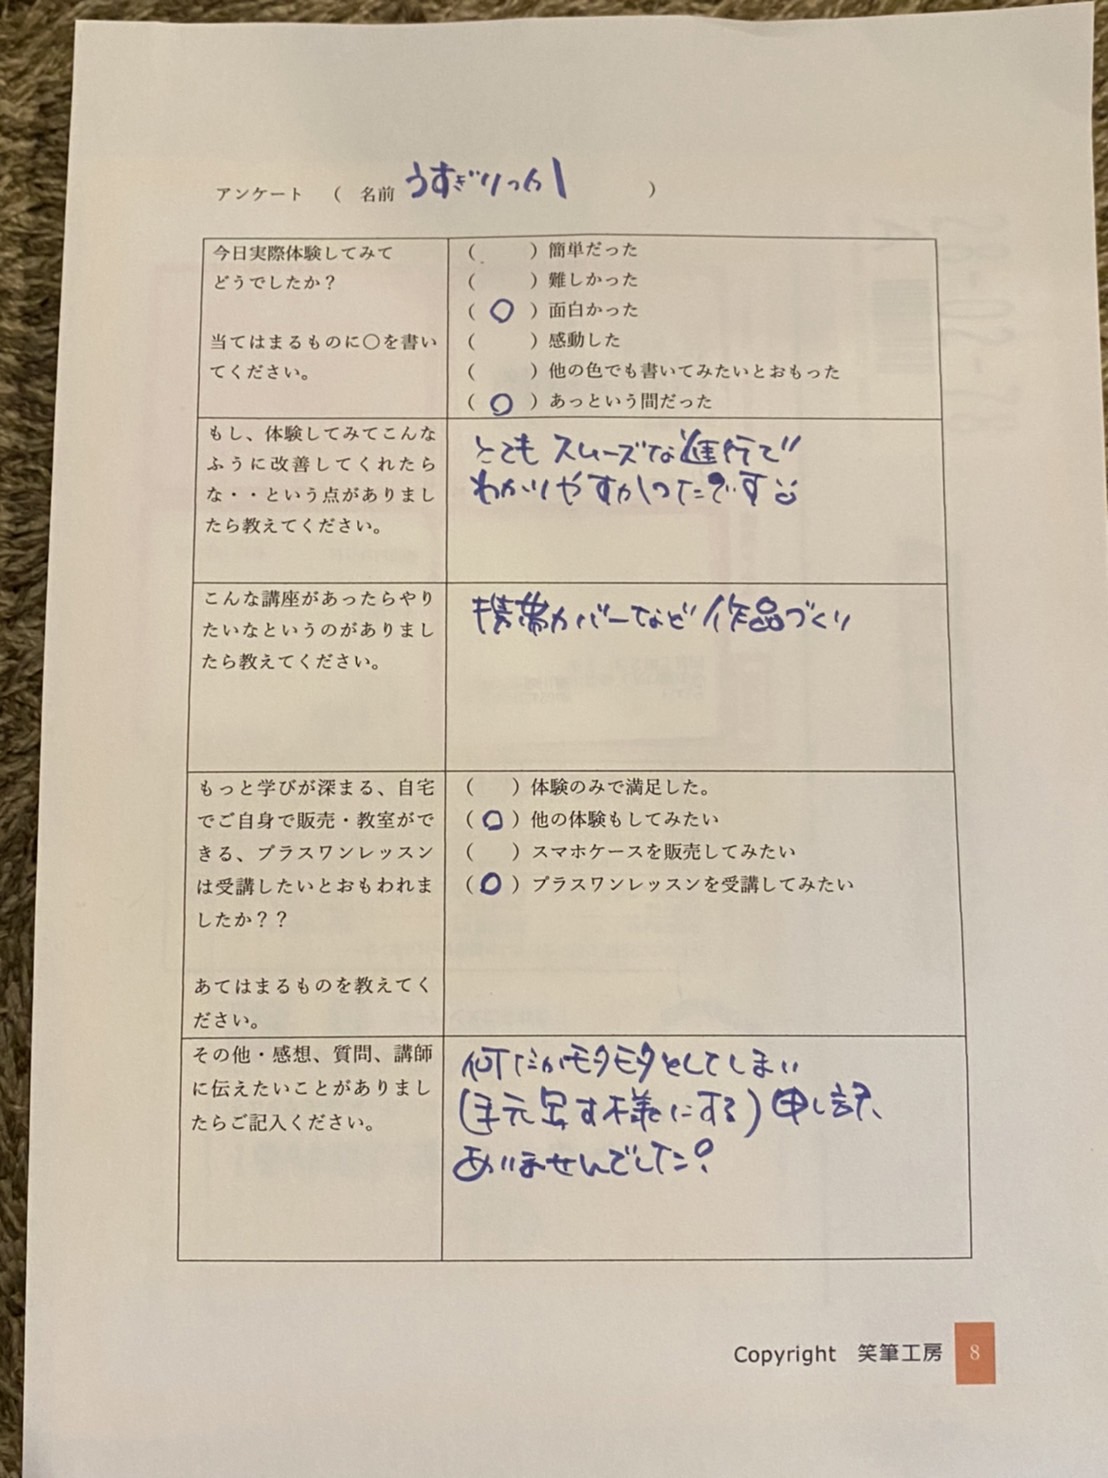 アンケート （ 名前 うすぎりっち ）
今日実際体験してみて
どうでしたか？
当てはまるものに〇を書い
てください。
（ ）簡単だった
（ ）難しかった
（ 〇 ）面白かった
（ ）感動した
（ ）他の色でも書いてみたいとおもった
（ 〇 ）あっという間だった
もし、体験してみてこんな
ふうに改善してくれたら
な・・という点がありまし
たら教えてください。
とても スムーズな進行で
わかりやすかったです
こんな講座があったらやり
たいなというのがありまし
たら教えてください。
携帯カバーなど 作品づくり
もっと学びが深まる、自宅
でご自身で販売・教室がで
きる、プラスワンレッスン
は受講したいとおもわれま
したか？？
あてはまるものを教えてく
ださい。
（ ）体験のみで満足した。
（ 〇 ）他の体験もしてみたい
（ ）スマホケースを販売してみたい
（ 〇 ）プラスワンレッスンを受講してみたい
その他・感想、質問、講師
に伝えたいことがありまし
たらご記入ください。
何だかモタモタとしてしまい
(手元写す様にする) 申し訳
ありませんでした
Copyright 笑筆工房 8